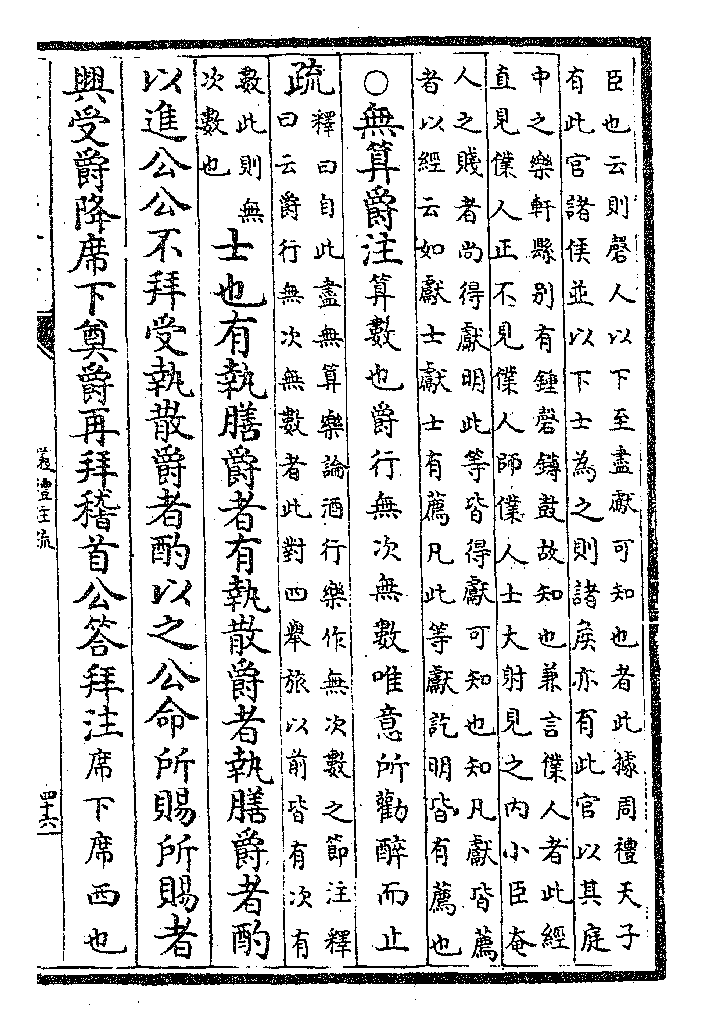 臣也云則磬人以下至盡獻可知也者此據周禮天子
有此官諸侯並以下士為之則諸侯亦有此官以其庭
中之樂軒縣别有鍾磬鏄鼓故知也兼言僕人者此經
直見僕人正不見僕人師僕人士大射見之内小臣奄
人之賤者尚得獻明此等皆得獻可知也知凡獻皆薦
者以經云如獻士獻士有薦凡此等獻訖明皆有薦也
○無算爵注算數也爵行無次無數唯意所勸醉而止
疏釋曰自此盡無算樂論酒行樂作無次數之節注釋
曰云爵行無次無數者此對四舉旅以前皆有次有
數此則無
次數也
士也有執膳爵者有執散爵者執膳爵者酌
以進公公不拜受執散爵者酌以之公命所賜所賜者
興受爵降席下奠爵再拜稽首公答拜注席下席西也
儀禮注疏
四十六